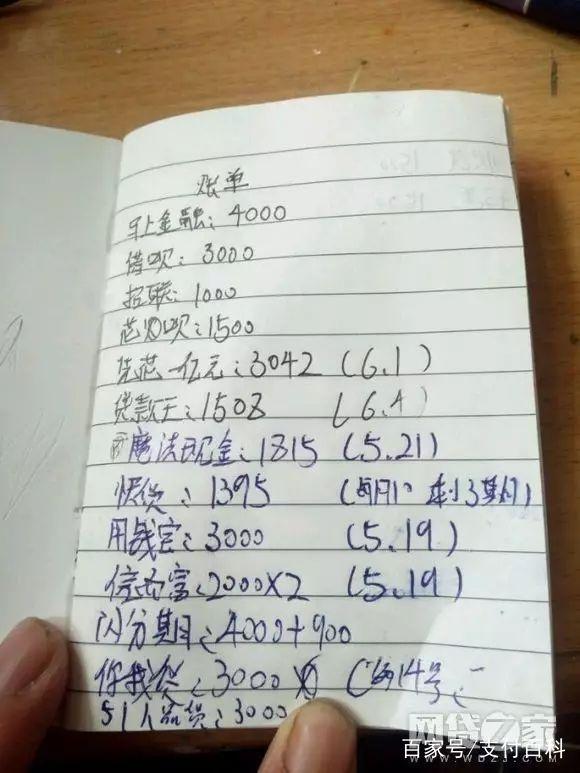 账单
马上金融:4000
借呗:3000
招联:1000
芯 呗:1500
先花一亿元:3042 (6.1)
贷款王:1508 (6.4)
魔法现金:1815 (5.21)
快贷:1395 (每月1 剩3期)
用钱宝:3000 (5.19)
信 富:2000×2 (5.19)
闪分期:4000+900
你我贷:3000 ( 14号
51人品贷:3000
网贷之家
WDZJ.COM
百家号/支付百科